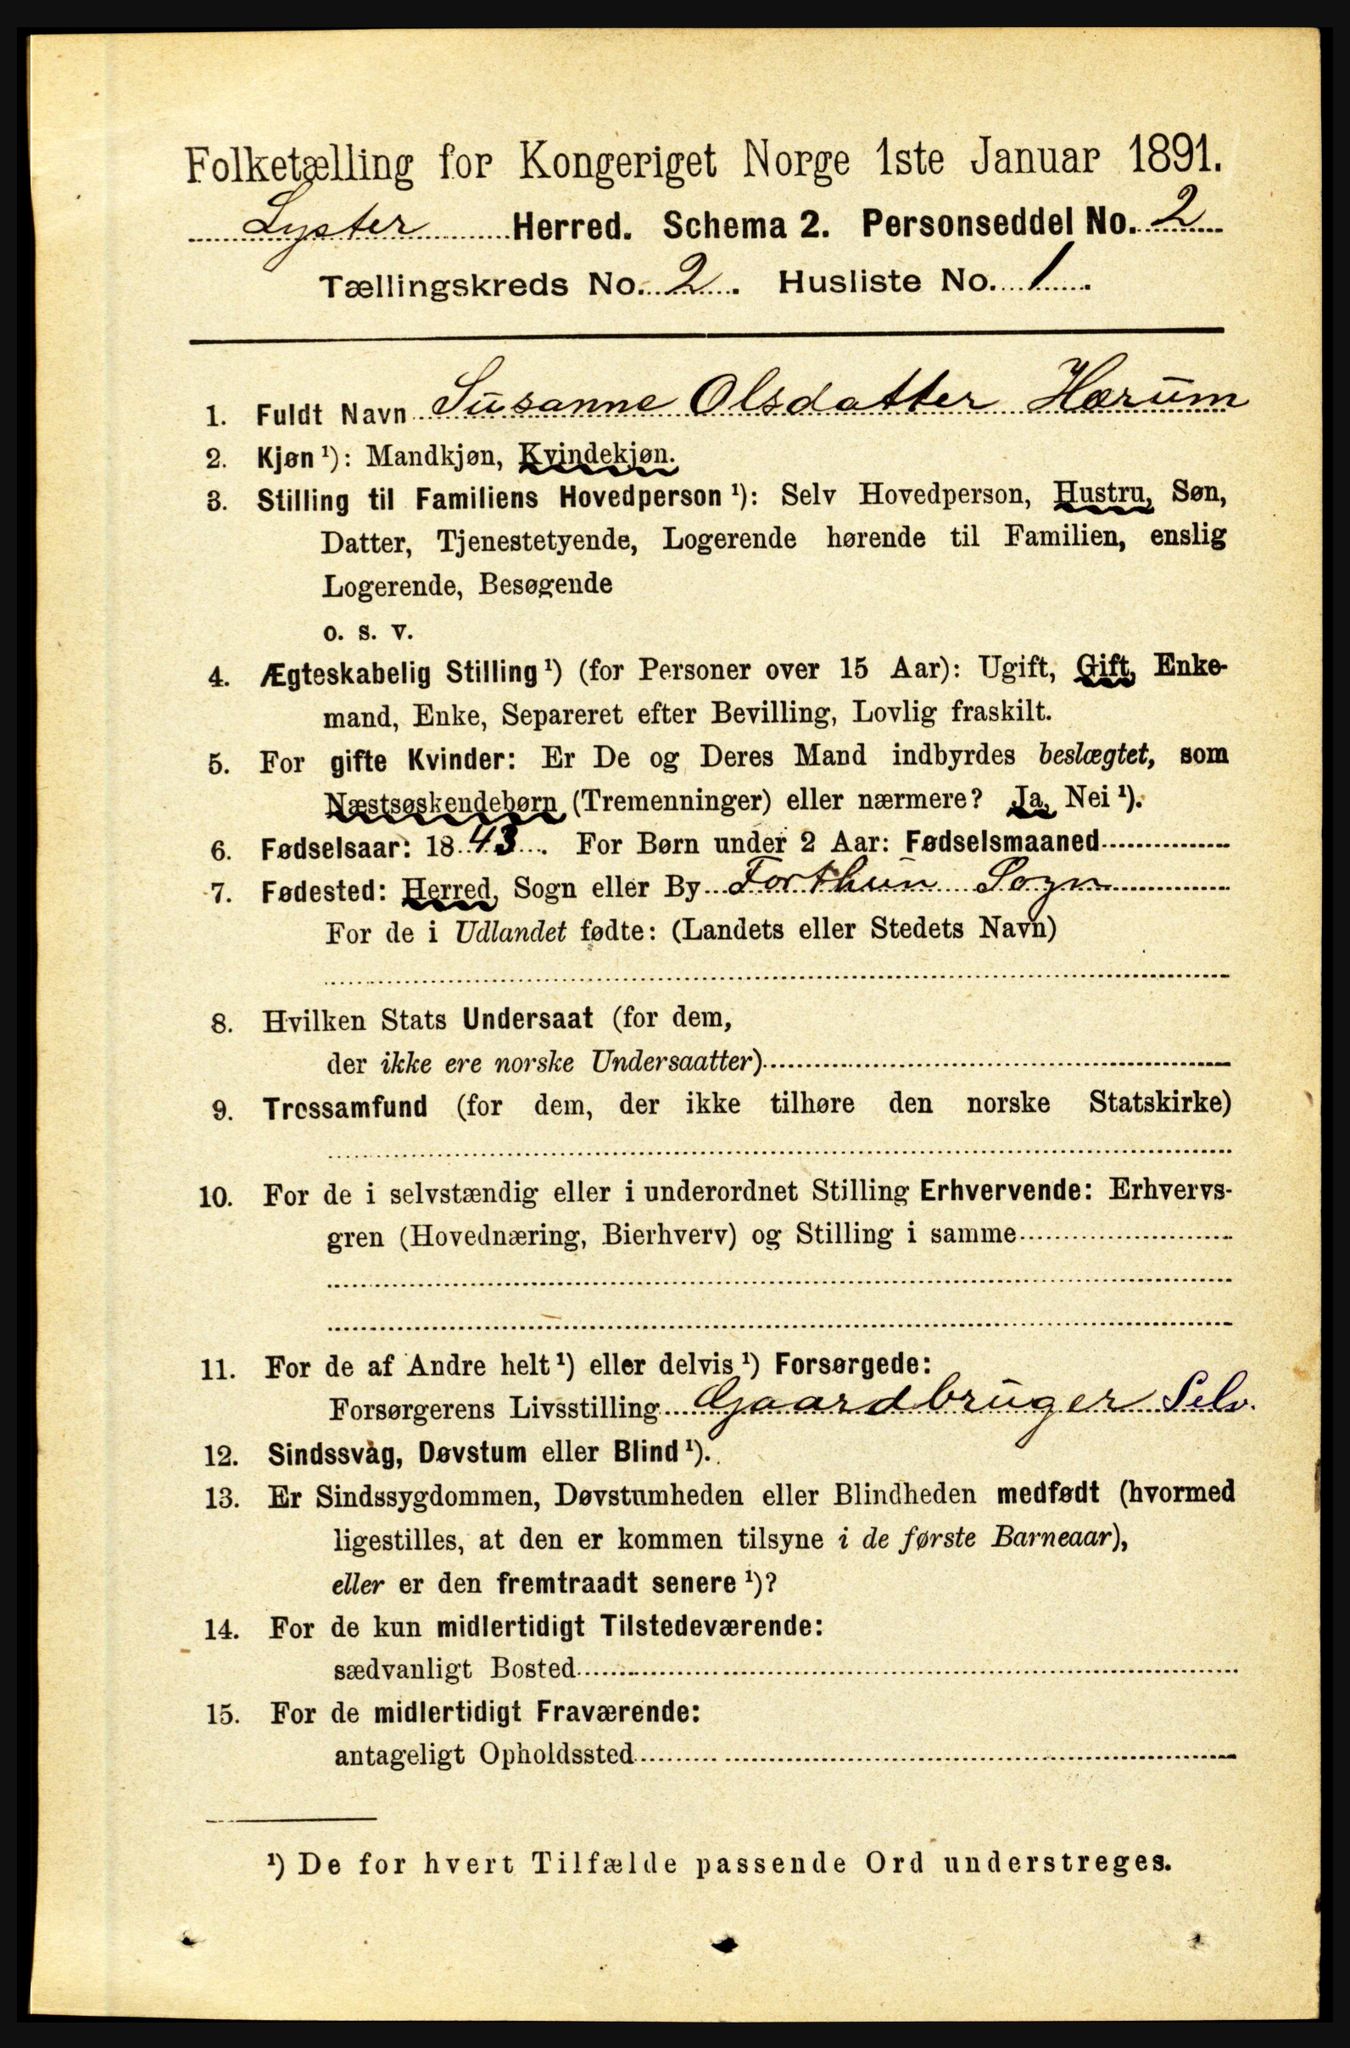 Folketælling for Kongeriget Norge 1ste Januar 1891.
Lyster Herred. Schema 2. Personseddel No. 2
Tællingskreds No. 2. Husliste No. 1.
1. Fuldt Navn Susanne Olsdatter Hærum
2. Kjøn ¹): Mandkjøn, Kvindekjøn.
3. Stilling til Familiens Hovedperson ¹): Selv Hovedperson, Hustru, Søn,
Datter, Tjenestetyende, Logerende hørende til Familien, enslig
Logerende, Besøgende
o. s. v.
4. Ægteskabelig Stilling ¹) (for Personer over 15 Aar): Ugift, Gift, Enke-
mand, Enke, Separeret efter Bevilling, Lovlig fraskilt.
5. For gifte Kvinder: Er De og Deres Mand indbyrdes beslægtet, som
Næstsøskendebørn (Tremenninger) eller nærmere? Ja, Nei ¹).
6. Fødselsaar: 1843. For Børn under 2 Aar: Fødselsmaaned
7. Fødested: Herred, Sogn eller By Forthun Sogn
For de i Udlandet fødte: (Landets eller Stedets Navn)
8. Hvilken Stats Undersaat (for dem,
der ikke ere norske Undersaatter)
9. Trossamfund (for dem, der ikke tilhøre den norske Statskirke)
10. For de i selvstændig eller i underordnet Stilling Erhvervende: Erhvervs-
gren (Hovednæring, Bierhverv) og Stilling i samme
11. For de af Andre helt ¹) eller delvis ¹) Forsørgede:
Forsørgerens Livsstilling Gaardbruger Selv.
12. Sindssvag, Døvstum eller Blind ¹).
13. Er Sindssygdommen, Døvstumheden eller Blindheden medfødt (hvormed
ligestilles, at den er kommen tilsyne i de første Barneaar),
eller er den fremtraadt senere ¹)?
14. For de kun midlertidigt Tilstedeværende:
sædvanligt Bosted
15. For de midlertidigt Fraværende:
antageligt Opholdssted
¹) De for hvert Tilfælde passende Ord understreges.